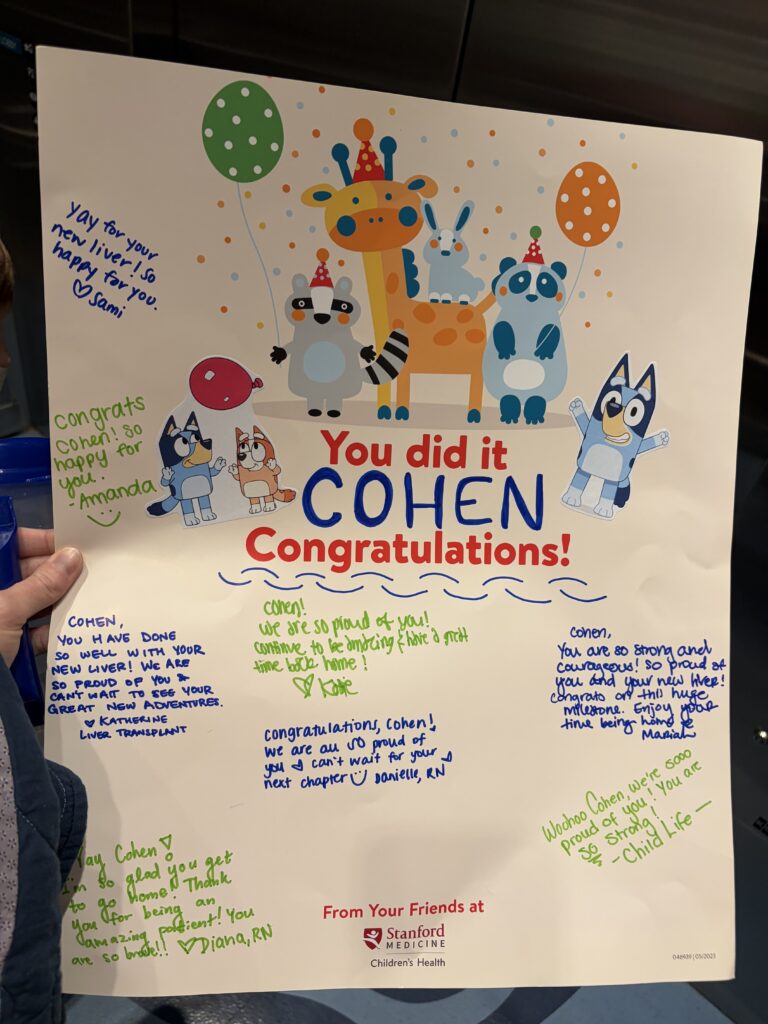 Yay for your
new liver! So
happy for you.
♡ Sami
congrats
Cohen! So
happy for
you.
- Amanda
You did it
COHEN
Congratulations!
COHEN,
YOU HAVE DONE
SO WELL WITH YOUR
NEW LIVER! WE ARE
SO PROUD OF YOU &
CAN'T WAIT TO SEE YOUR
GREAT NEW ADVENTURES.
♡ KATHERINE
LIVER TRANSPLANT
Cohen!
We are so proud of you!
continue to be amazing & have a great
time back home!
♡ Katie
Cohen,
You are so strong and
courageous! So proud of
you and your new liver!
congrats on this huge
milestone. Enjoy your
time being home
Mariah
congratulations, Cohen!
We are all so proud of
you & can't wait for your
next chapter Danielle, RN
Woohoo Cohen, we're sooo
proud of you! You are
so strong!
- Child Life -
Yay Cohen!
I'm so glad you get
to go home! Thank
you for being an
amazing patient! You
are so brave!! ♡ Diana, RN
From Your Friends at
Stanford
MEDICINE
Children's Health
046939 | 05/2023